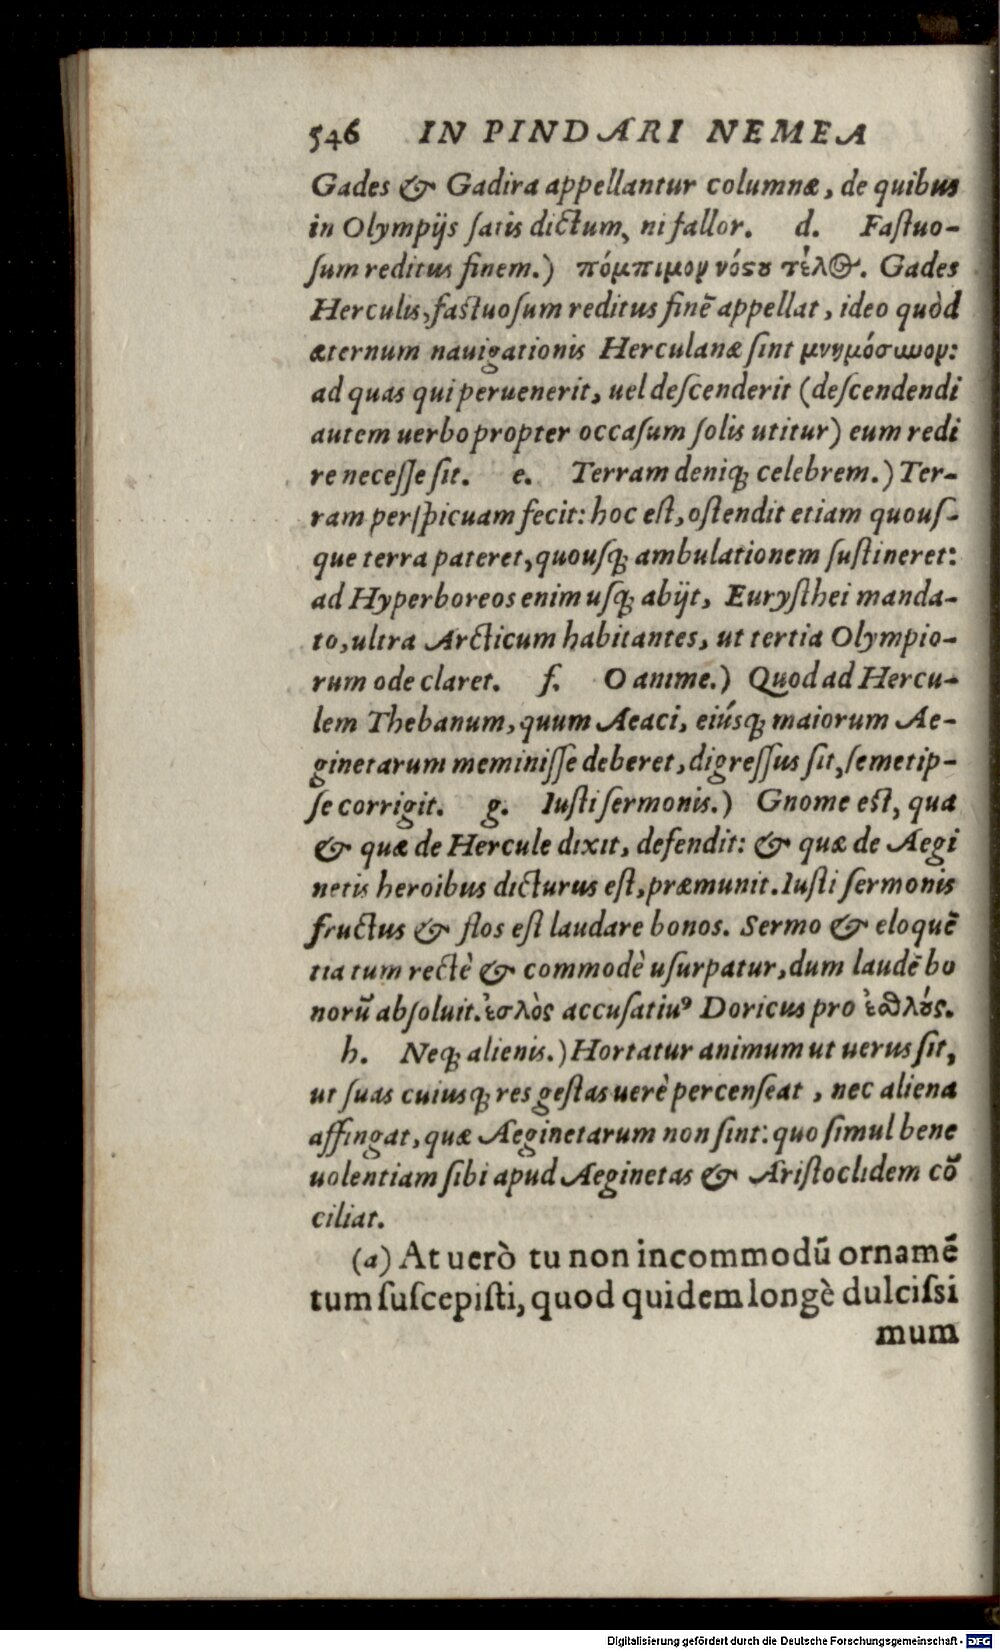 546 IN PINDARI NEMEA
Gades & Gadira appellantur columnæ, de quibus
in Olympijs ſatis dictum, ni fallor. d. Faſtuo-
ſum reditus finem.) πόμπιμον νόςου τέλος. Gades
Herculis, faſtuoſum reditus finē appellat, ideo quòd
æternum nauigationis Herculanæ ſint μνημόσυνον:
ad quas qui peruenerit, uel deſcenderit (deſcendendi
autem uerbo propter occaſum ſolis utitur) eum redi
re neceſſe ſit. e. Terram deniq; celebrem.) Ter-
ram perſpicuam fecit: hoc eſt, oſtendit etiam quouſ-
que terra pateret, quouſq; ambulationem ſuſtineret:
ad Hyperboreos enim uſq; abijt, Euryſthei manda-
to, ultra Arcticum habitantes, ut tertia Olympio-
rum ode claret. f. O anime.) Quod ad Hercu-
lem Thebanum, quum Aeaci, eiúsq; maiorum Ae-
ginetarum meminiſſe deberet, digreſſus ſit, ſemetip-
ſe corrigit. g. Iuſti ſermonis.) Gnome eſt, qua
& quæ de Hercule dixit, defendit: & quæ de Aegi
netis heroibus dicturus eſt, præmunit. Iuſti ſermonis
fructus & flos eſt laudare bonos. Sermo & eloquē
tia tum rectè & commodè uſurpatur, dum laudē bo
norū abſoluit. ἐσλὸς accuſatiuꝰ Doricus pro ἐσθλούς.
h. Neq; alienis.) Hortatur animum ut uerus ſit,
ut ſuas cuiusq; res geſtas uerè percenſeat, nec aliena
affingat, quæ Aeginetarum non ſint: quo ſimul bene
uolentiam ſibi apud Aeginetas & Ariſtoclidem cō
ciliat.
(a) At uerò tu non incommodū ornamē
tum ſuſcepiſti, quod quidem longè dulciſsi
mum
Digitalisierung gefördert durch die Deutsche Forschungsgemeinschaft - DFG